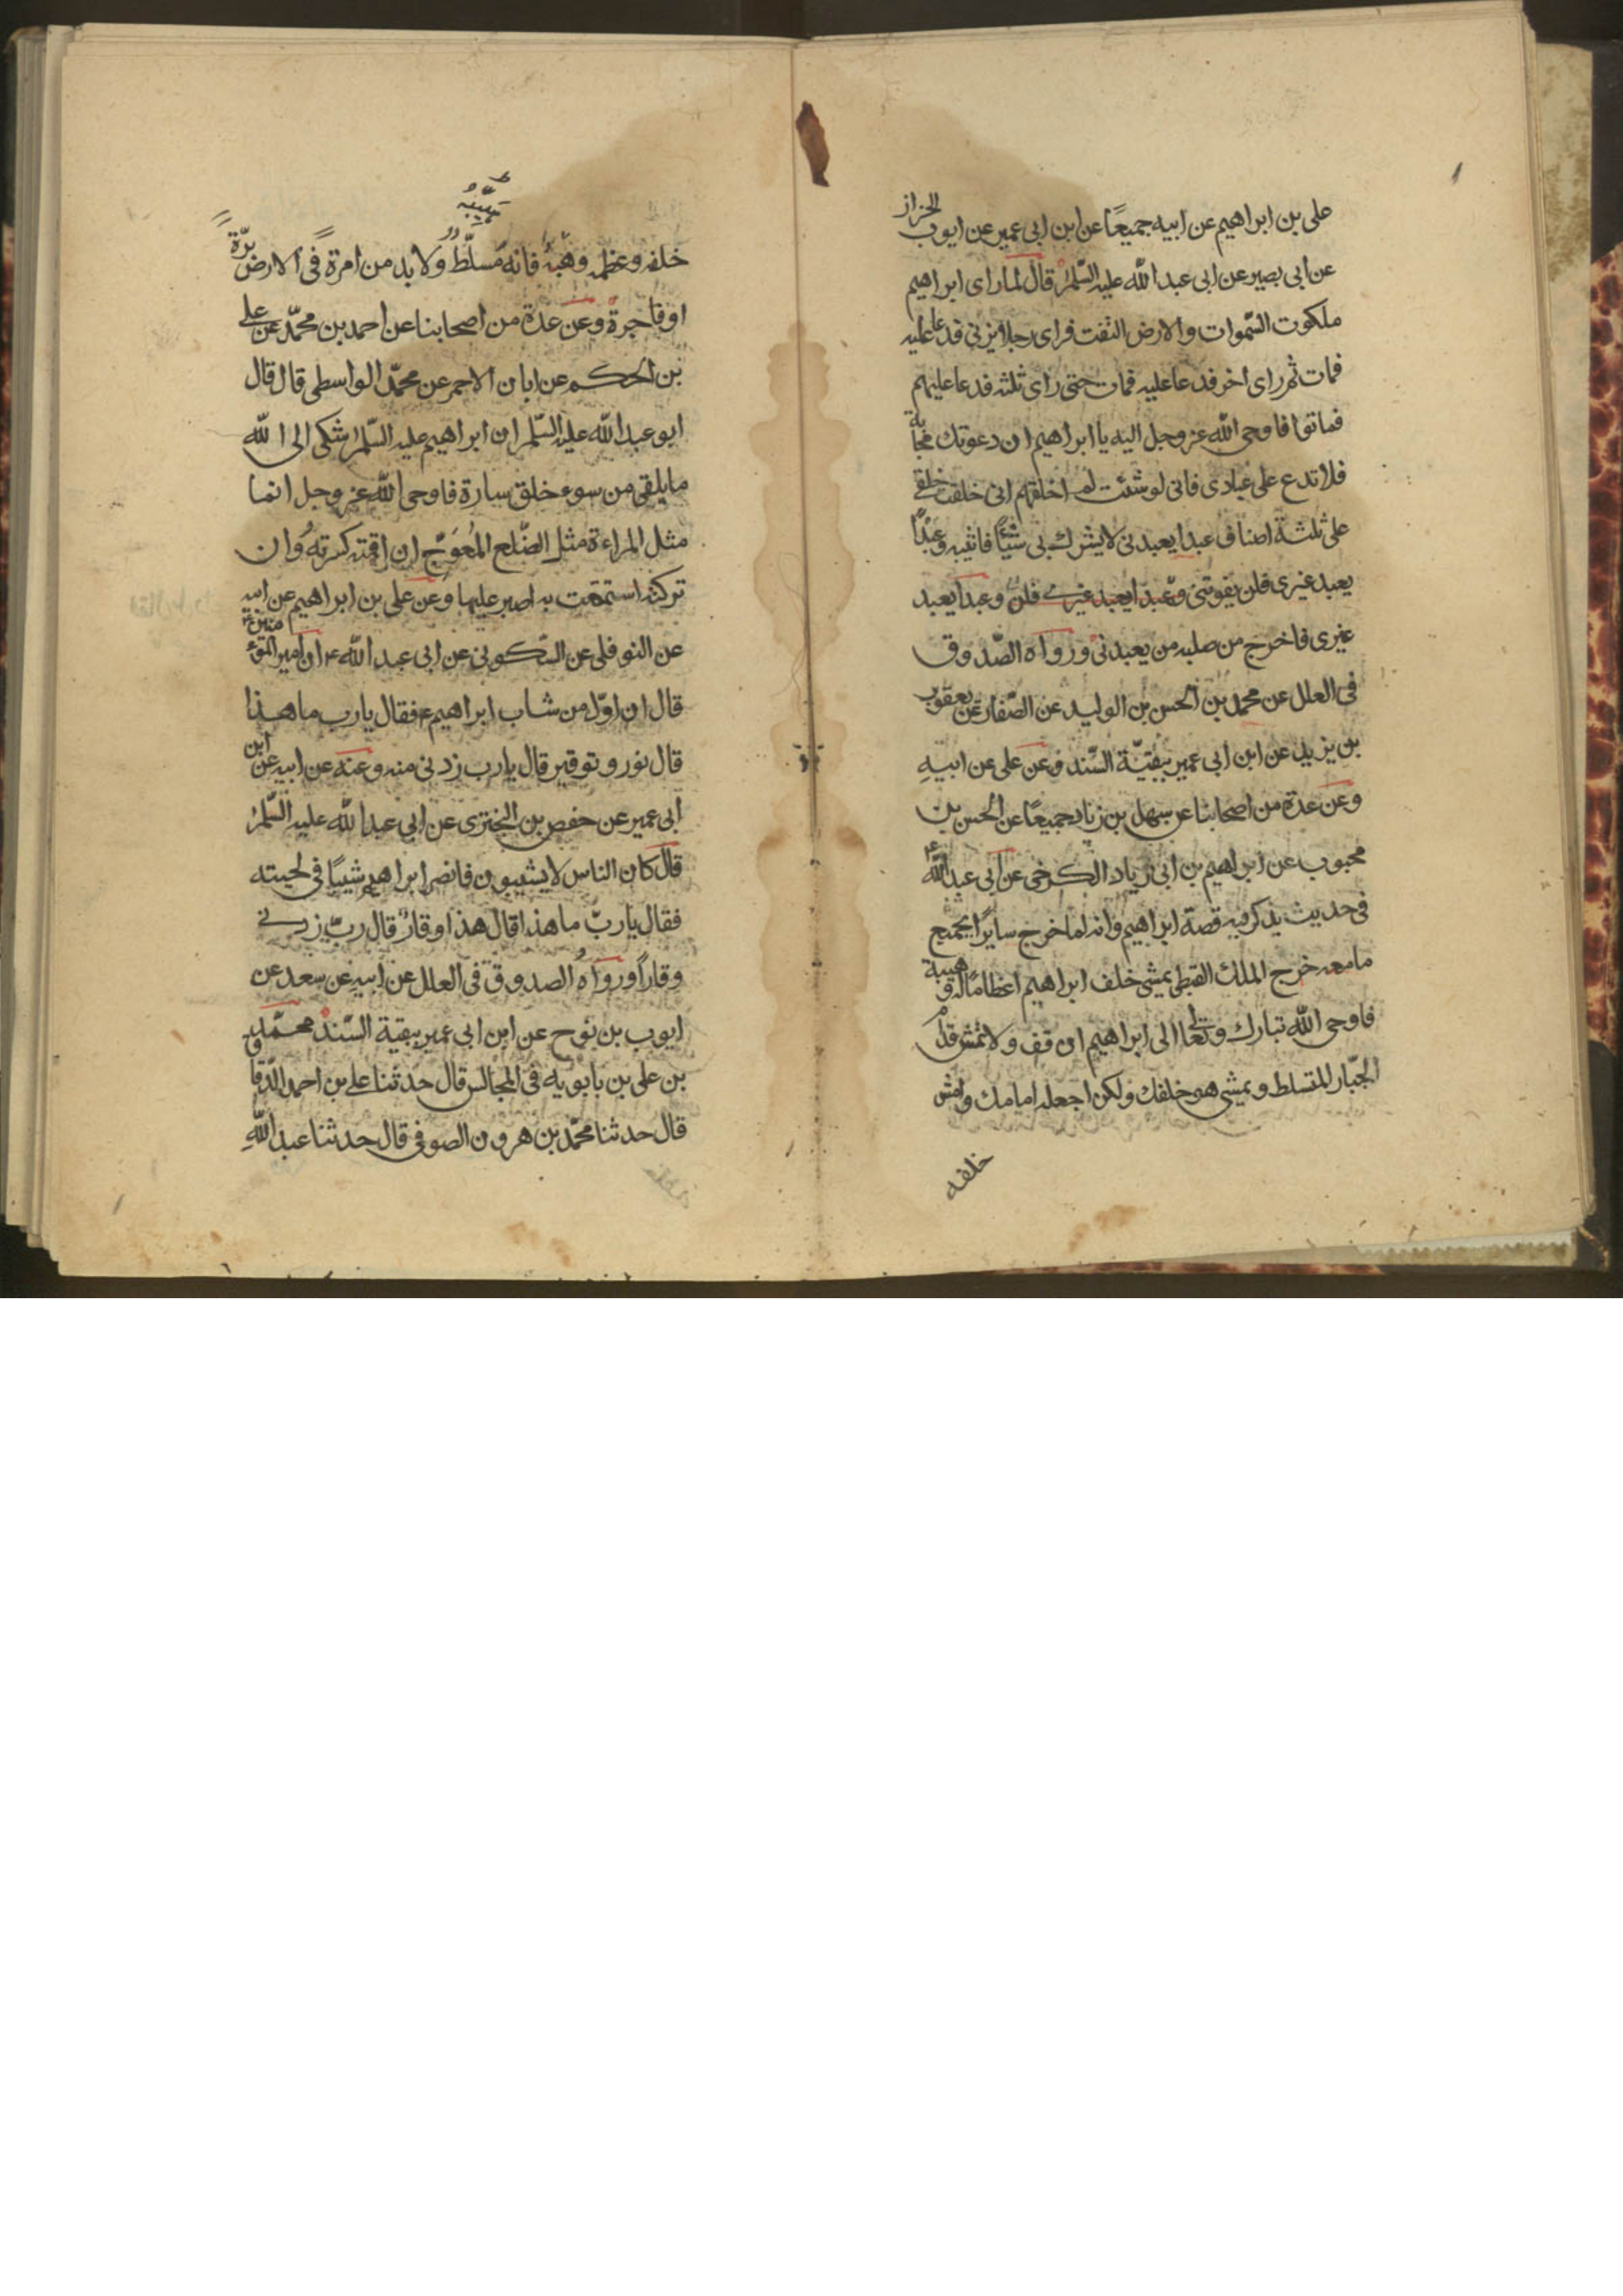 على بن ابراهيم عن ابيه جميعًا عن ابن ابى عمير عن ايوب الخزاز
عن ابى بصير عن ابى عبد الله عليه السّلم قال لما راى ابراهيم
ملكوت السّموات والارض التفت فراى رجلا يزنى فدعا عليه
فمات ثم راى اخر فدعا عليه فمات حتى راى ثلثه فدعا عليهم
فماتوا فاوحى الله عز وجل اليه يا ابراهيم ان دعوتك مجابة
فلا تدع على عبادى فانى لو شئت لم اخلقهم انى خلقت خلقى
على ثلثة اصناف عبدا يعبدنى لا يشرك بى شيئًا فاثيبه وعبدًا
يعبد غيرى فلن يفوتنى وعبدا يعبد غيرى فلن وعبدا يعبد
غيرى فاخرج من صلبه من يعبدنى ورواه الصّدوق
فى العلل عن محمد بن الحسن بن الوليد عن الصّفار عن يعقوب
بن يزيد عن ابن ابى عمير ببقيّة السّند وعن على عن ابيهِ
وعن عدة من اصحابنا عن سهل بن زياد جميعًا عن الحسن بن
محبوب عن ابراهيم بن ابى زياد الكرخى عن ابى عبد الله ع
فى حديث يذكر فيه قصة ابراهيم وانه لما خرج سايرًا بجميع
ما معه خرج الملك القبطى يمشى خلف ابراهيم اعظامًا له وهيبة
فاوحى الله تبارك وتعالى الى ابراهيم ان قف ولا تمش قدام
الجبّار المتسلط ويمشى هو خلفك ولكن اجعله امامك وامش
خلفه
هَيِّبْهُ
خلفه وعظمه وهبه فانه مُسلّطٌ ولا بد من امرة فى الارض برّة
او فاجرة وعن عدة من اصحابنا عن احمد بن محمّد عن على
بن الحكم عن ابان الاحمر عن محمّد الواسطى قال قال
ابو عبد الله عليه السّلم ان ابراهيم عليه السّلم شكى الى الله
ما يلقى من سوء خلق سارة فاوحى الله عز وجل انما
مثل المراءة مثل الضّلع المُعوَجّ ان اقمته كسرته وان
تركته استمتعت به اصبر عليها وعن على بن ابراهيم عن ابيه
عن النوفلى عن السّكونى عن ابى عبد الله ع ان امير المؤمنين ع
قال ان اوّل من شاب ابراهيم ع فقال يا رب ما هذا
قال نور وتوقير قال يا رب زدنى منه وعنه عن ابيه عن ابن
ابى عمير عن حفص بن البخترى عن ابى عبد الله عليه السّلم
قال كان الناس لا يشيبون فابصر ابراهيم شيبًا فى لحيته
فقال يا ربّ ما هذا قال هذا وقارٌ قال ربّ زدنى
وقاراً ورواه الصدوق فى العلل عن ابيه عن سعد عن
ايوب بن نوح عن ابن ابى عمير ببقية السّند محمّد
بن على بن بابويه فى المجالس قال حدثنا على بن احمد الدّقاق
قال حدثنا محمّد بن هرون الصوفى قال حدثنا عبد اللهِ